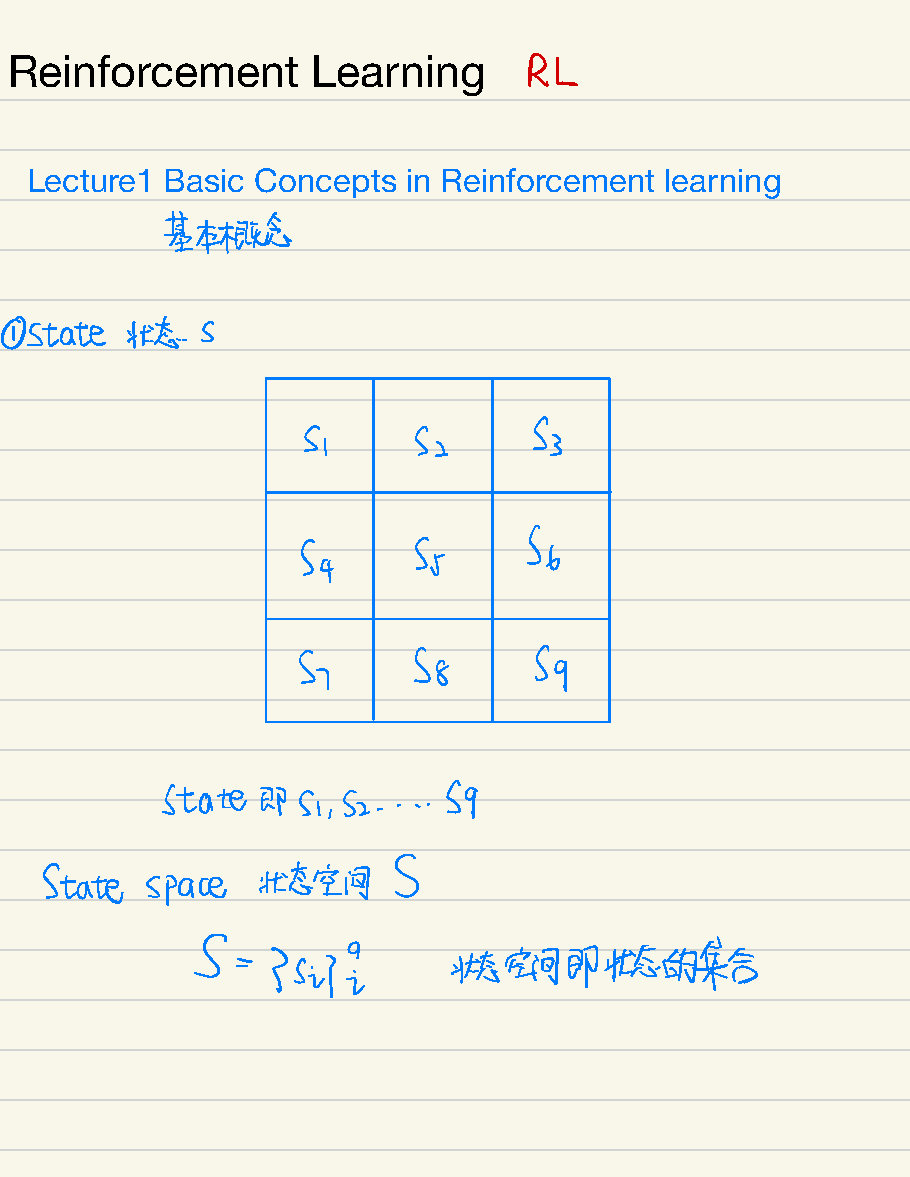 Reinforcement Learning RL
Lecture1 Basic Concepts in Reinforcement learning
基本概念
①State 状态 s
S1 S2 S3
S4 S5 S6
S7 S8 S9
State 即 S1, S2..... S9
State space 状态空间 S
S = {Si}⁹ᵢ 状态空间即状态的集合